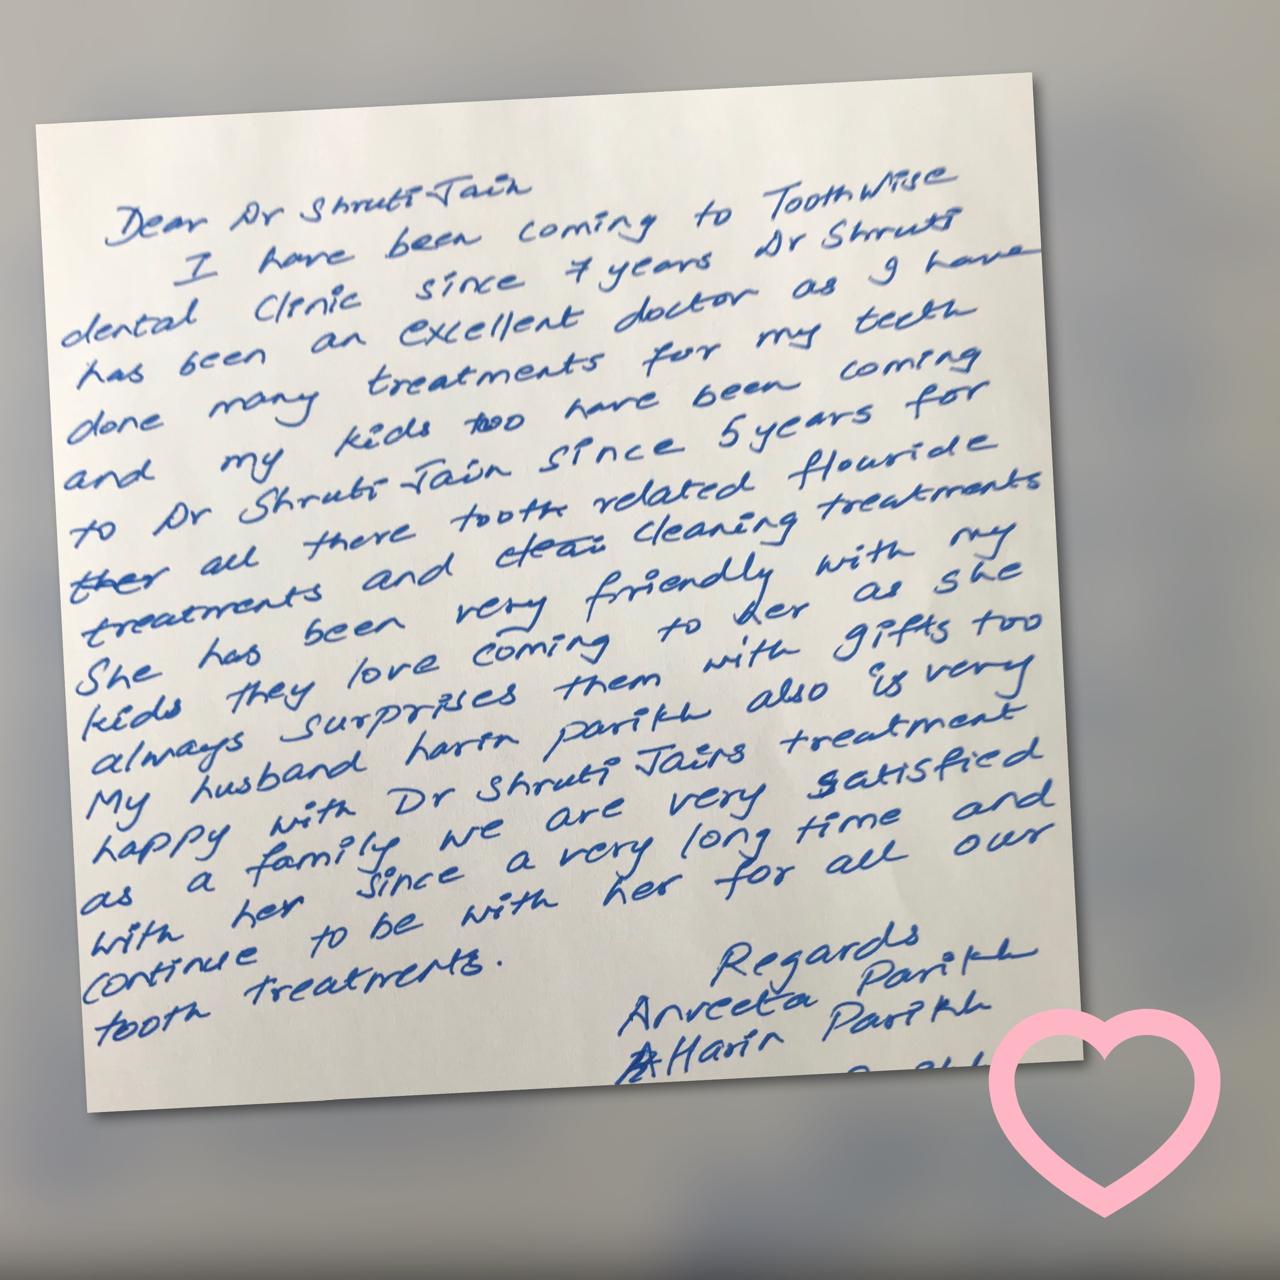 Dear Dr Shruti Jain
I have been coming to Toothwise
dental Clinic since 7 years Dr Shruti
has been an excellent doctor as I have
done many treatments for my teeth
and my kids too have been coming
to Dr Shruti Jain since 5 years for
ther all there tooth related flouride
treatments and clean cleaning treatments
She has been very friendly with my
kids they love coming to her as she
always surprises them with gifts too
My husband harin parikh also is very
happy with Dr Shruti Jains treatment
as a family we are very satisfied
with her since a very long time and
continue to be with her for all our
tooth treatments.
Regards
Anveeta Parikh
Harin Parikh